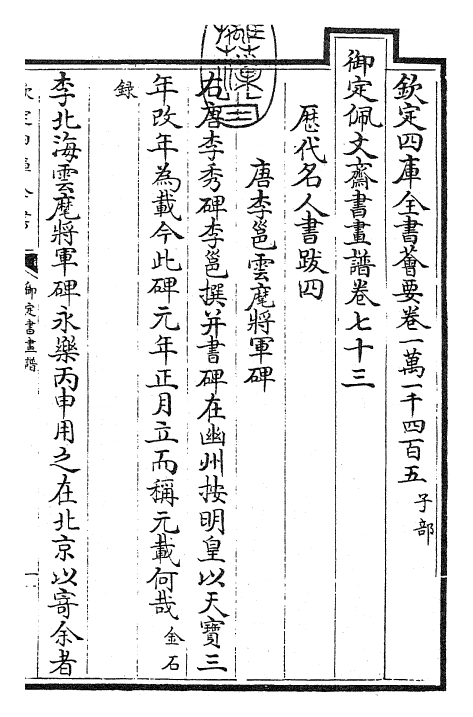 欽定四庫全書薈要卷一萬一千四百五 子部
御定佩文齋書畫譜卷七十三
歴代名人書跋四
唐李邕雲麾將軍碑
右唐李秀碑李邕撰并書碑在幽州按明皇以天寶三
年改年為載今此碑元年正月立而稱元載何哉 金石
録
李北海雲麾將軍碑永樂丙申用之在北京以寄余者
御定書畫譜
一